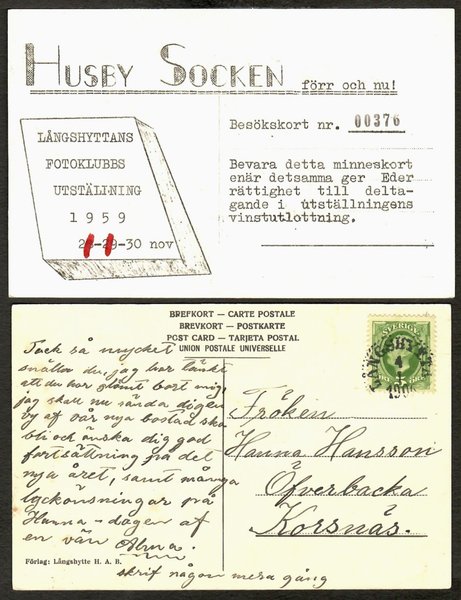 HUSBY SOCKEN förr och nu!
LÅNGSHYTTANS
FOTOKLUBBS
UTSTÄLLNING
1959
28-29-30 nov
Besökskort nr. 00376
Bevara detta minneskort
enär detsamma ger Eder
rättighet till delta-
gande i utställningens
vinstutlottning.
BREFKORT — CARTE POSTALE
BREVKORT — POSTKARTE
POST CARD — TARJETA POSTAL
UNION POSTALE UNIVERSELLE
Tack så mycket
snälla du, jag har tänkt
att du har glömt bort mig,
jag skall nu sända dig en
vy af vår nya bostad ska
bli och önska dig god
fortsättning på det
nya året, samt många
lyckönsningar på
Hanna-dagen af
en vän Alma.
skrif någon mera gång
Förlag: Långshytte H. A. B.
SVERIGE
LÅNGSHYTTAN
4
1
Fröken
Hanna Hansson
Öfverbacka
Korsnäs.